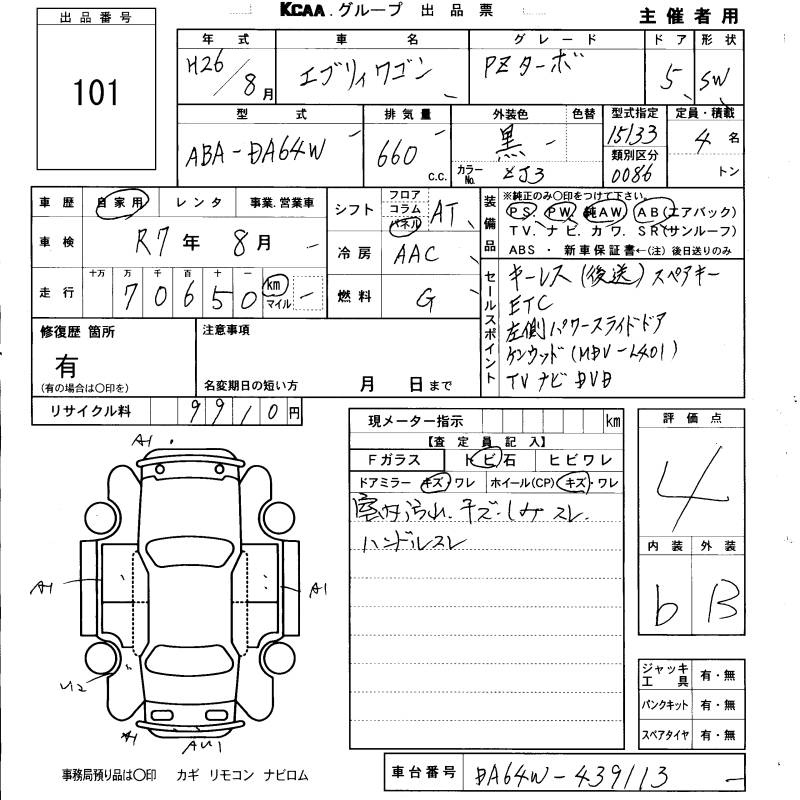 KCAA.グループ 出品票
主催者用
出品番号
101
年式 車名 グレード ドア 形状
H26/8月 エブリィワゴン PZターボ 5 SW
型式 排気量 外装色 色替 型式指定 定員・積載
ABA-DA64W 660 c.c. 黒 カラーNo. ZJ3 15133 4名
類別区分
0086 トン
車歴 自家用 レンタ 事業.営業車
車検 R7年 8月
走行 十万 万 千 百 十 一
70650 km マイル
シフト フロア コラム パネル AT
冷房 AAC
燃料 G
装備品
※純正のみ〇印をつけて下さい。
PS. PW 純AW AB(エアバック)
TV. ナビ. カワ. SR(サンルーフ)
ABS ・ 新車保証書←(注) 後日送りのみ
セールスポイント
キーレス(後送)スペアキー
ETC
左側パワースライドドア
ケンウッド(MDV-L401)
TVナビDVD
修復歴 箇所
有
(有の場合は〇印を)
注意事項
名変期日の短い方 月 日まで
リサイクル料 9910円
現メーター指示 km
【査定員記入】
Fガラス トビ石 ヒビワレ
ドアミラー キズ・ワレ ホイール(CP) キズ・ワレ
室内汚れ.キズ.しみスレ.
ハンドルスレ
評価点
4
内装 外装
b B
A1
A1
A1
U2
A1
AU1
ジャッキ工具 有・無
パンクキット 有・無
スペアタイヤ 有・無
事務局預り品は〇印 カギ リモコン ナビロム
車台番号 DA64W-439113